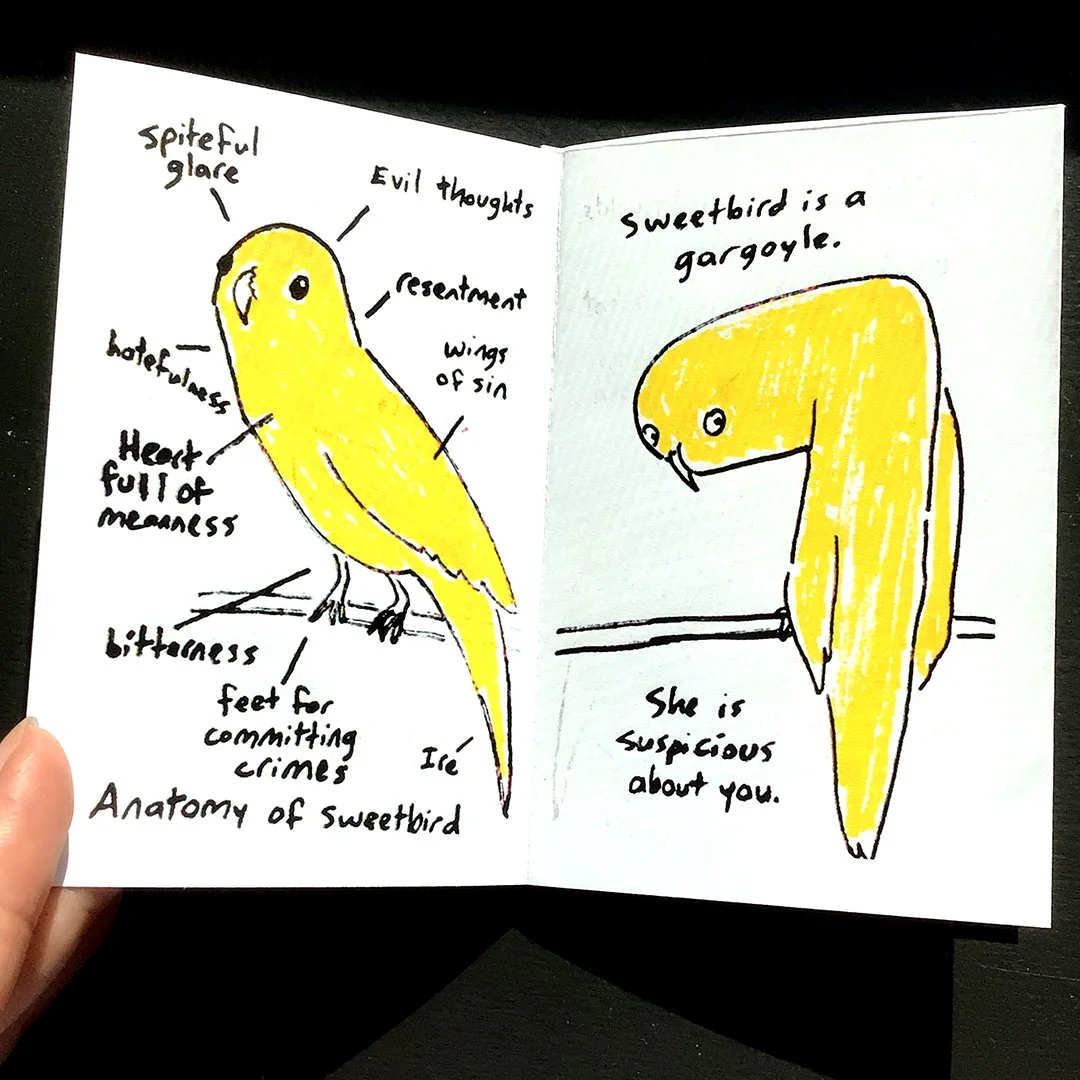 Spiteful
glare
Evil thoughts
resentment
hatefulness
wings
of sin
Heart
full of
meanness
bitterness
feet for
committing
crimes
Ire
Anatomy of Sweetbird
Sweetbird is a
gargoyle.
She is
suspicious
about you.